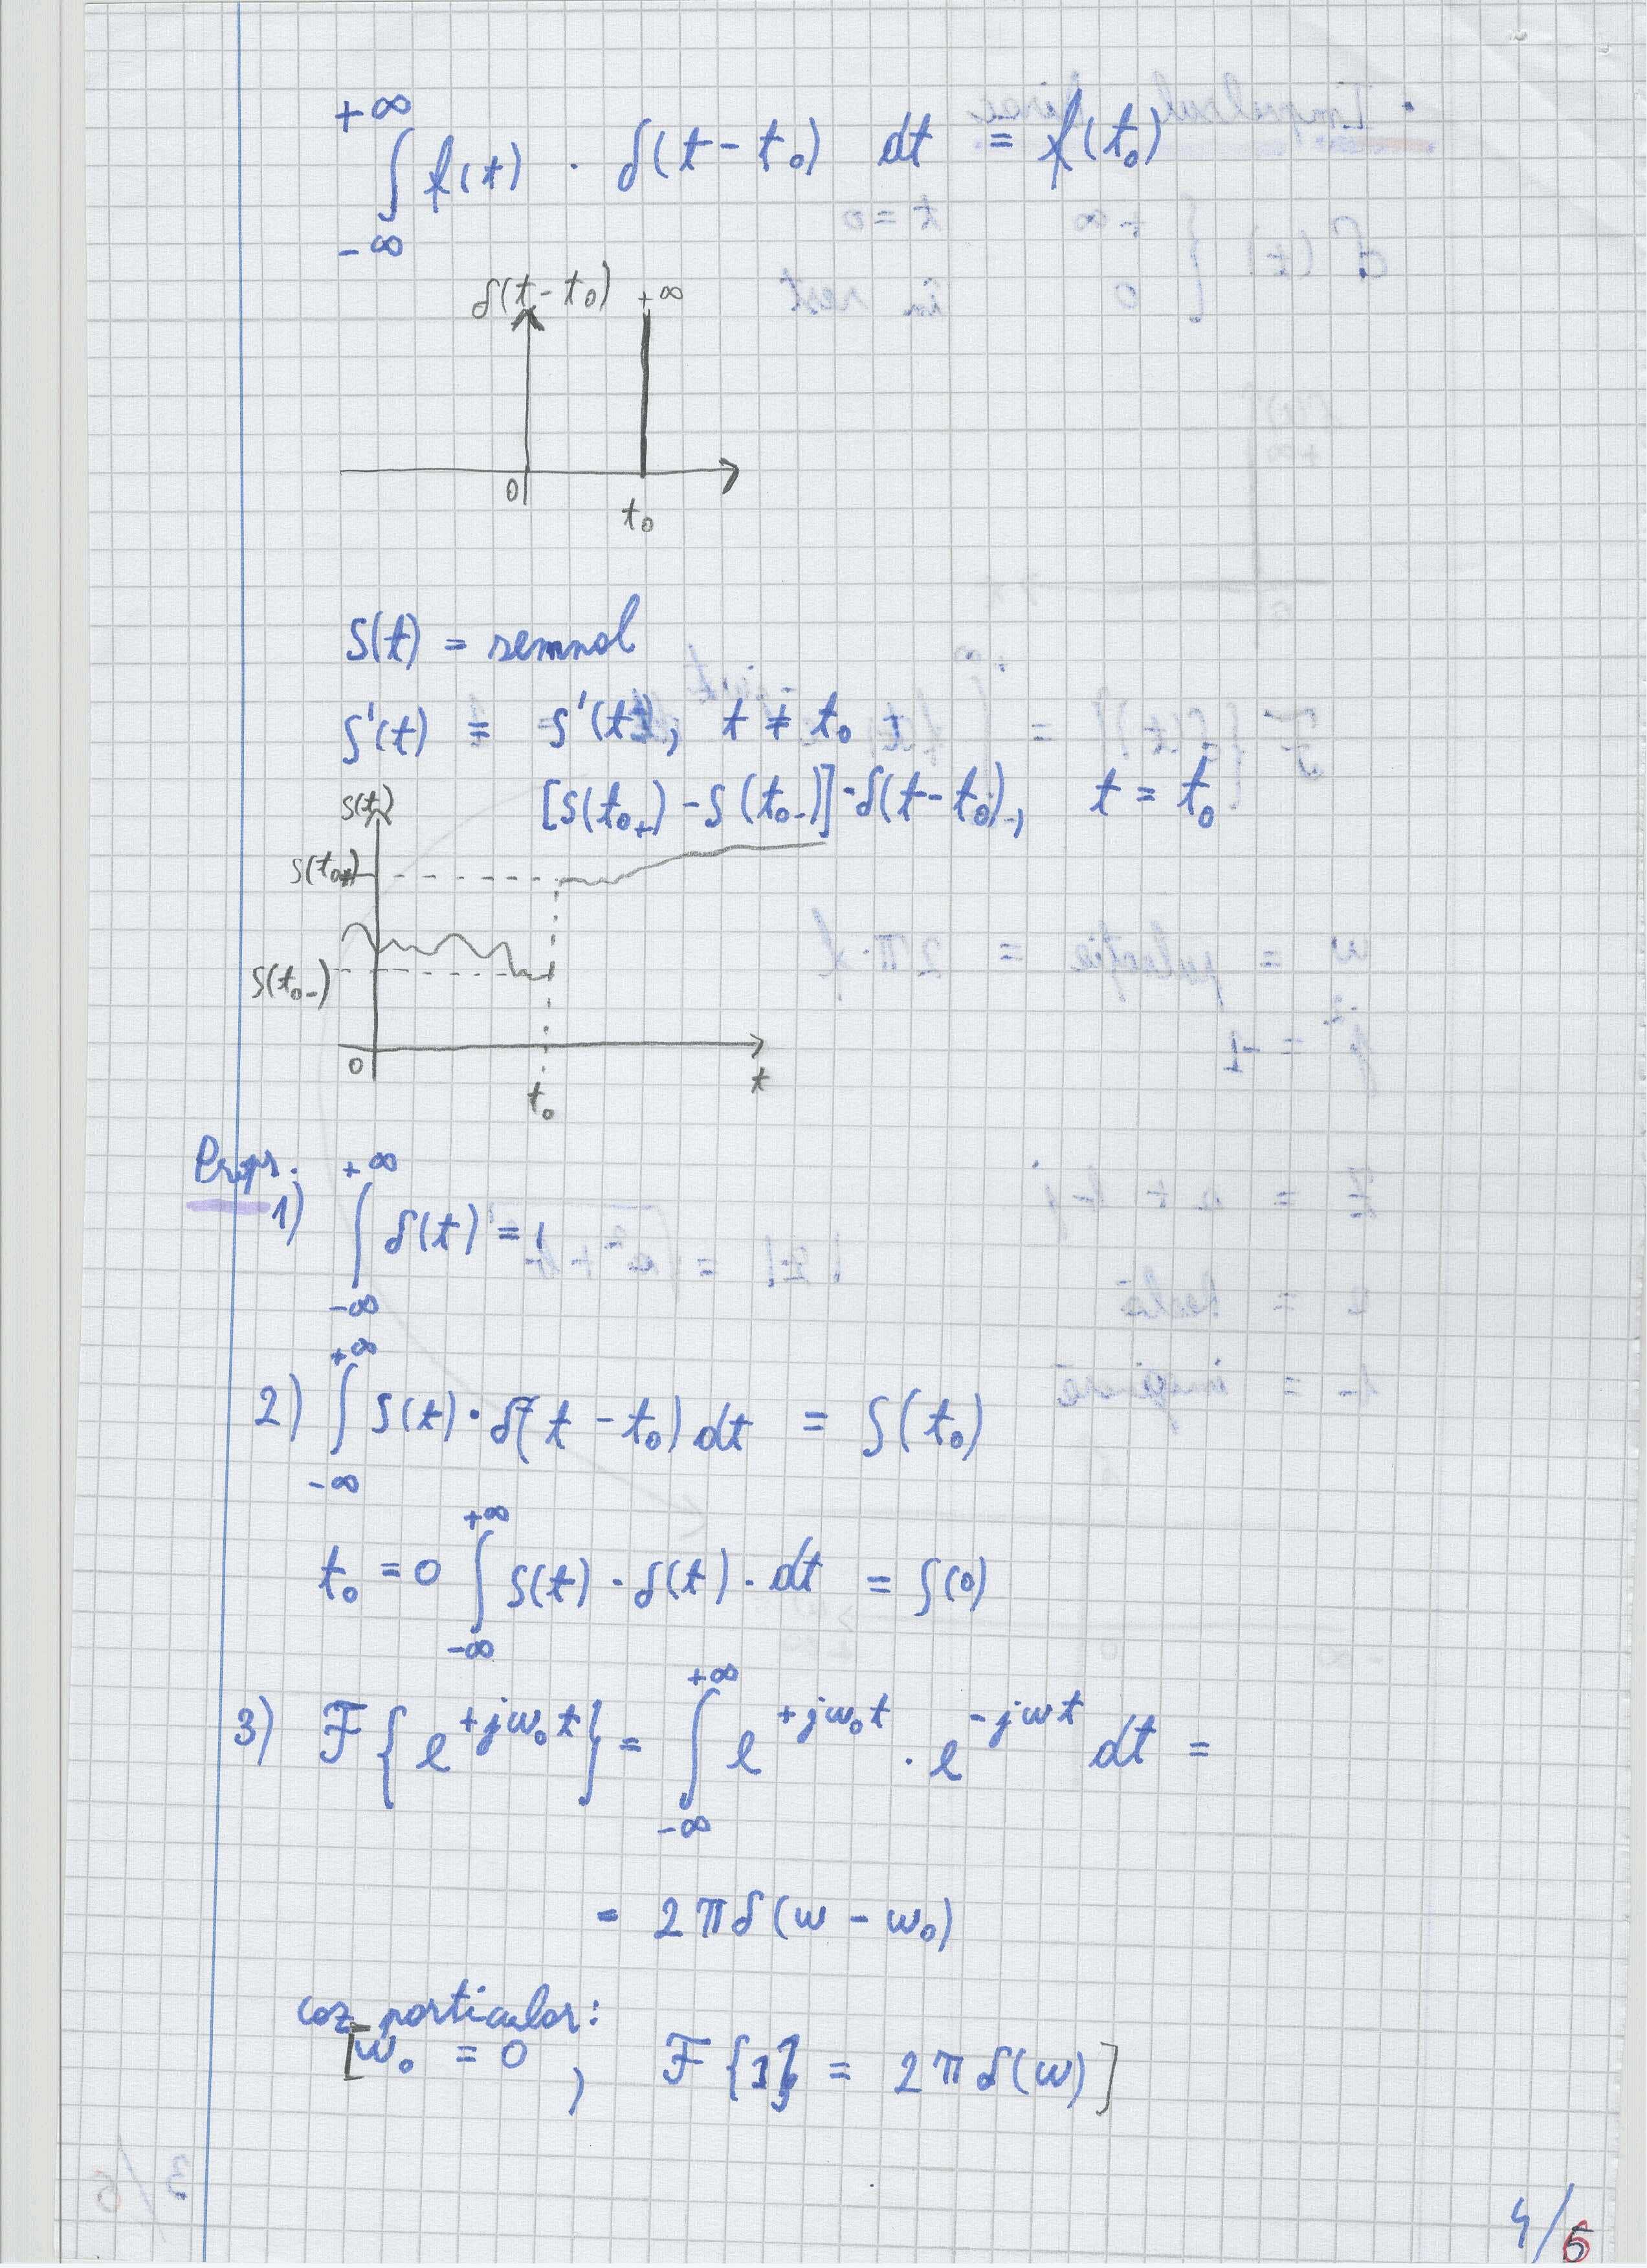 +∞
∫ f(t) · δ(t - t₀) dt = f(t₀)
-∞
δ(t - t₀) +∞
0
t₀
S(t) = semnal
S'(t) = S'(t), t ≠ t₀
[S(t₀₊) - S(t₀₋)]·δ(t - t₀), t = t₀
S(t)
S(t₀₊)
S(t₀₋)
0
t₀
t
Propr.
+∞
1) ∫ δ(t) = 1
-∞
+∞
2) ∫ S(t)·δ(t - t₀) dt = S(t₀)
-∞
+∞
t₀ = 0 ∫ S(t) · δ(t) · dt = S(0)
-∞
+∞
3) F{e^{+jω₀t}} = ∫ e^{+jω₀t} · e^{-jωt} dt =
-∞
= 2πδ(ω - ω₀)
caz particular:
[ω₀ = 0 , F{1} = 2πδ(ω)]
4/6